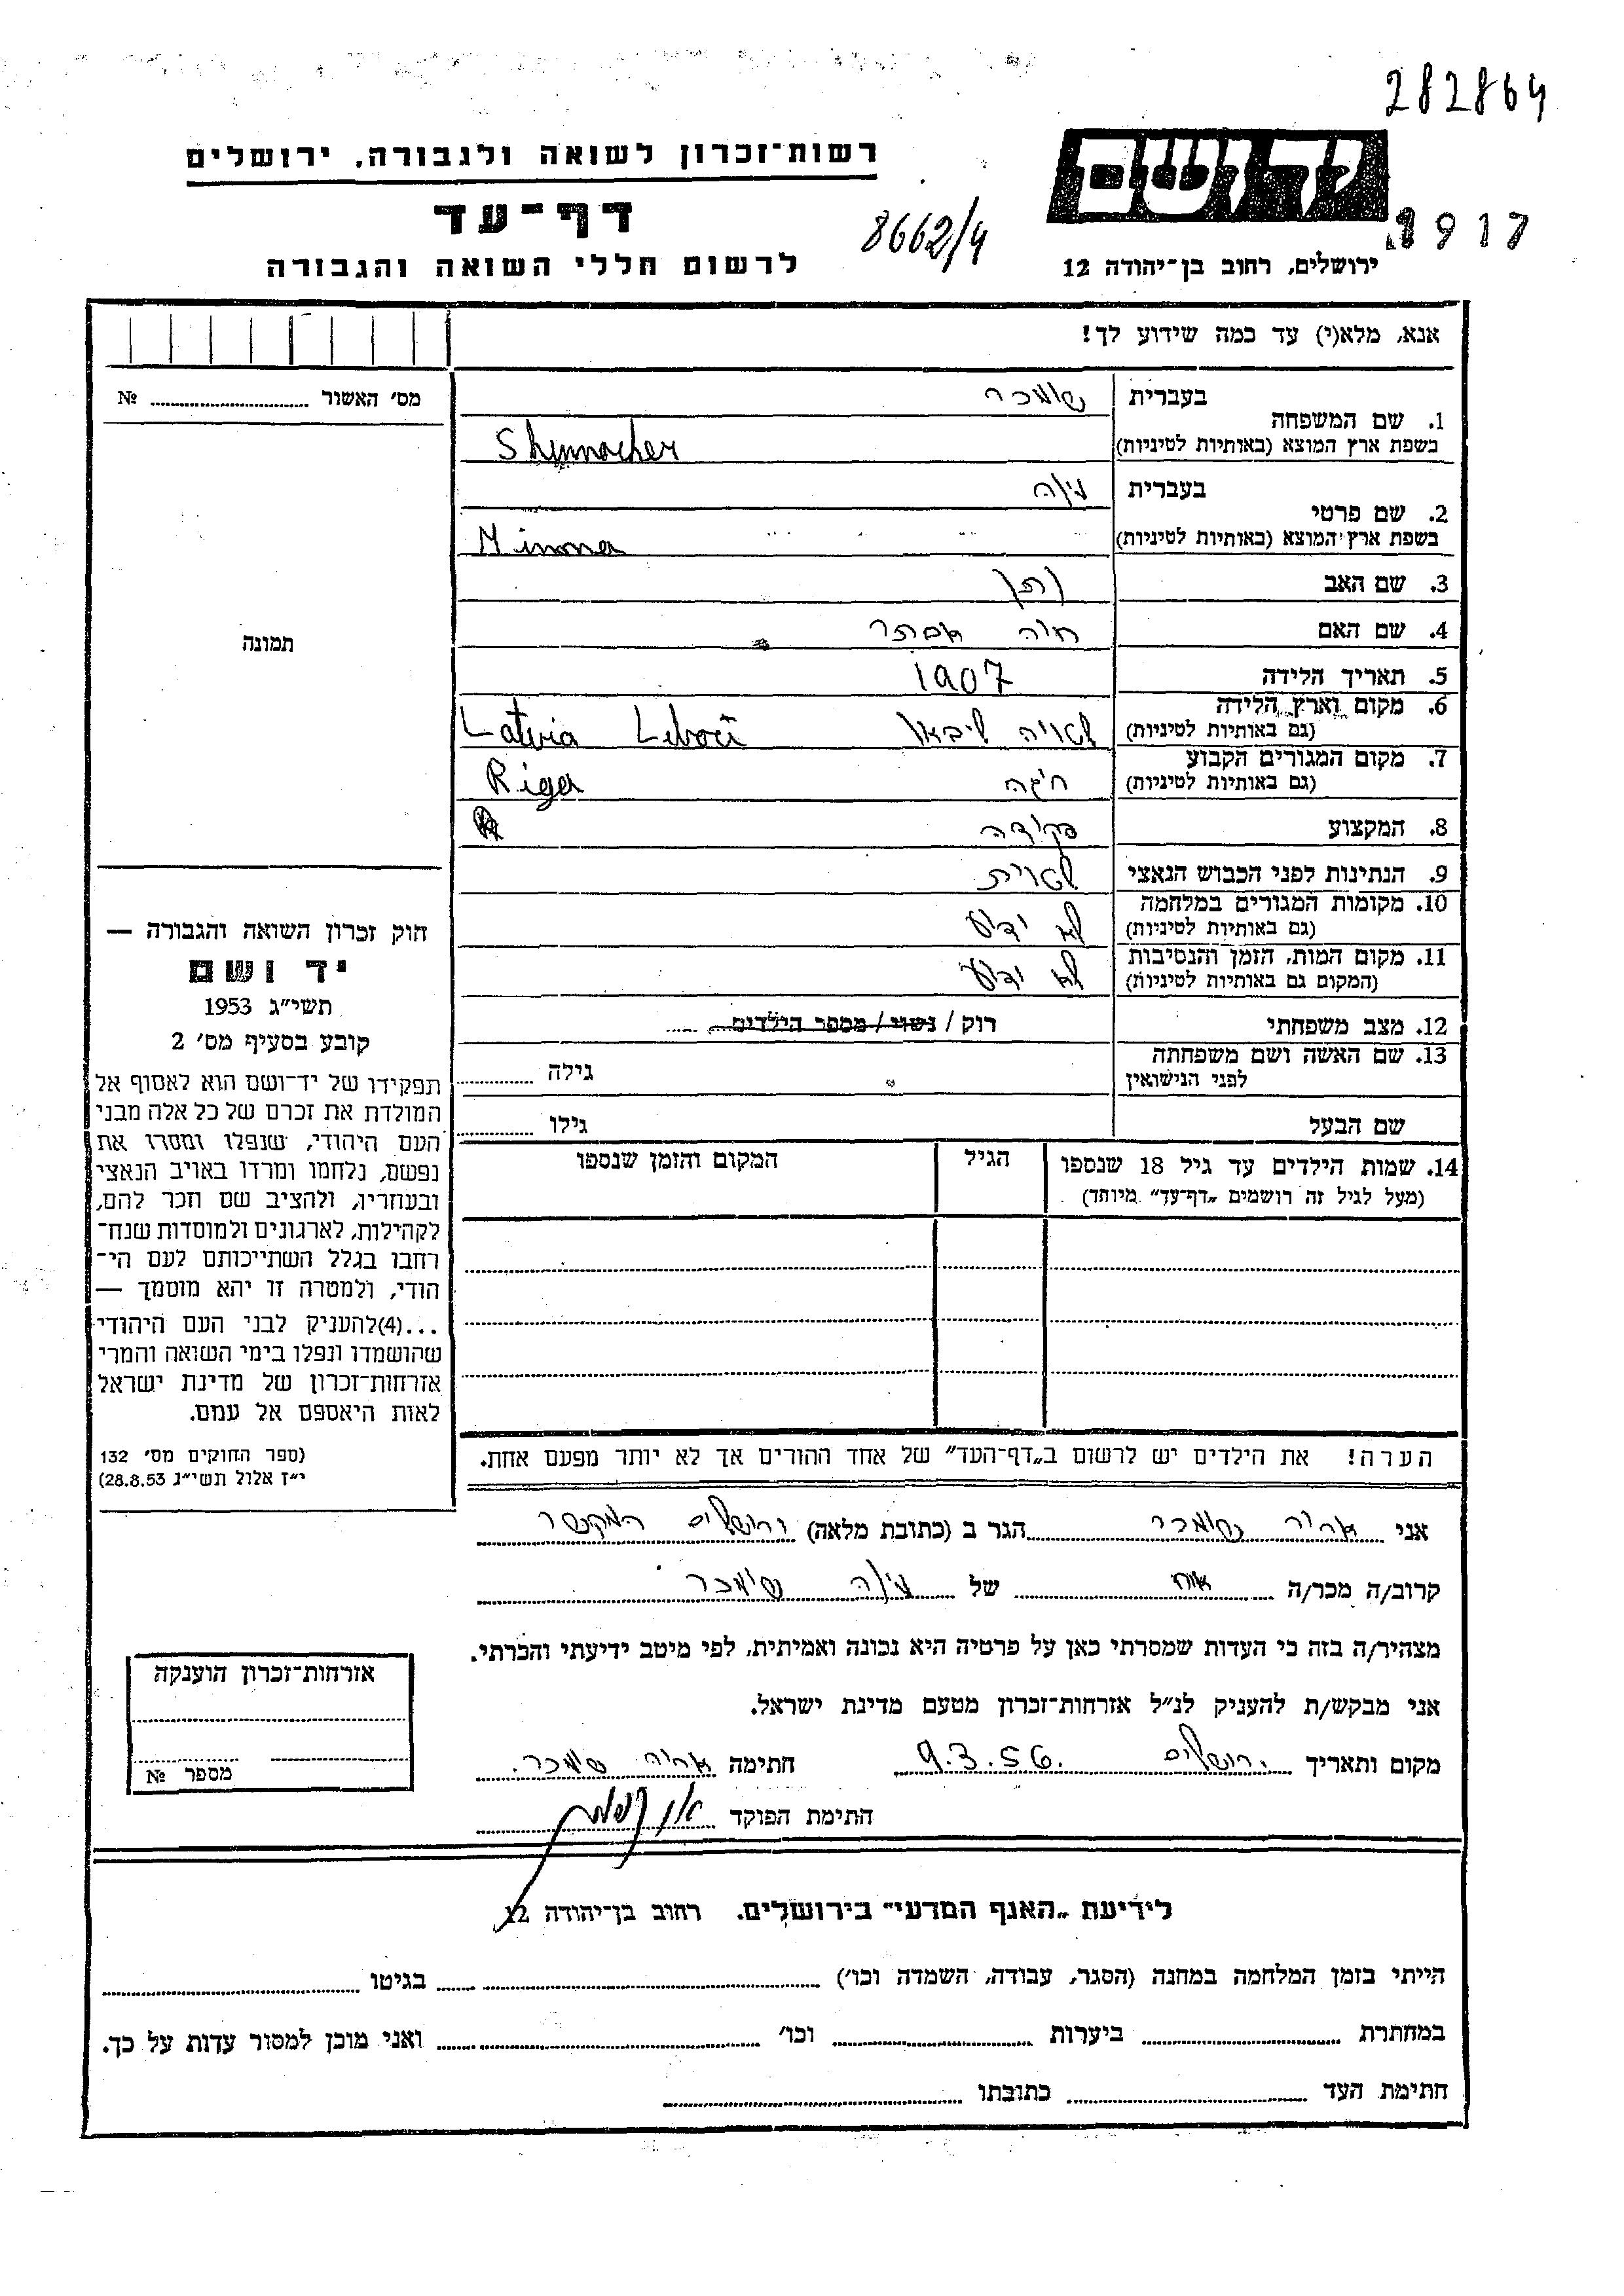 282864
רשות־זכרון לשואה ולגבורה, ירושלים
דף־עד
8662/4
ידושם
1917
לרשום חללי השואה והגבורה
ירושלים, רחוב בן־יהודה 12
אנא, מלא(י) עד כמה שידוע לך!
מס׳ האשור № ........
1. שם המשפחה
בעברית שומכר
בשפת ארץ המוצא (באותיות לטיניות) Shumacher
2. שם פרטי
בעברית מינה
בשפת ארץ המוצא (באותיות לטיניות) Minna
3. שם האב נתן
4. שם האם חוה אסתר
תמונה
5. תאריך הלידה 1907
6. מקום וארץ הלידה
(גם באותיות לטיניות) לטויה ליבאו Latvia
7. מקום המגורים הקבוע
(גם באותיות לטיניות) ריגה Riga
8. המקצוע פקידה
9. הנתינות לפני הכבוש הנאצי לטוית
10. מקומות המגורים במלחמה
(גם באותיות לטיניות) לא ידוע
11. מקום המות, הזמן והנסיבות
(המקום גם באותיות לטיניות) לא ידוע
12. מצב משפחתי רוק / נשוי / מספר הילדים ........
13. שם האשה ושם משפחתה
לפני הנישואין גילה ........
שם הבעל גילו ........
14. שמות הילדים עד גיל 18 שנספו
(מעל לגיל זה רושמים „דף־עד” מיוחד)
הגיל
המקום והזמן שנספו
חוק זכרון השואה והגבורה —
יד ושם
תשי״ג 1953
קובע בסעיף מס׳ 2
תפקידו של יד־ושם הוא לאסוף אל
המולדת את זכרם של כל אלה מבני
העם היהודי, שנפלו ומסרו את
נפשם, נלחמו ומרדו באויב הנאצי
ובעוזריו, ולהציב שם וזכר להם,
לקהילות, לארגונים ולמוסדות שנח־
רבו בגלל השתייכותם לעם הי־
הודי, ולמטרה זו יהא מוסמך —
...(4)להעניק לבני העם היהודי
שהושמדו ונפלו בימי השואה והמרי
אזרחות־זכרון של מדינת ישראל
לאות היאספם אל עמם.
(ספר החוקים מס׳ 132
י״ז אלול תשי״ג 28.8.53)
הערה! את הילדים יש לרשום ב„דף־העד” של אחד ההורים אך לא יותר מפעם אחת.
אני אריה שומכר הגר ב (כתובת מלאה) ירושלים
קרוב/ה מכר/ה אח של מינה שומכר
מצהיר/ה בזה כי העדות שמסרתי כאן על פרטיה היא נכונה ואמיתית, לפי מיטב ידיעתי והכרתי.
אני מבקש/ת להעניק לנ״ל אזרחות־זכרון מטעם מדינת ישראל.
מקום ותאריך ירושלים 9.3.56. חתימה אריה שומכר.
חתימת הפוקד
אזרחות־זכרון הוענקה
מספר №
לידיעת „האגף המדעי” בירושלים. רחוב בן־יהודה 12
הייתי בזמן המלחמה במחנה (הסגר, עבודה, השמדה וכו׳) ........ בגיטו ........
במחתרת ........ ביערות ........ וכו׳ ........ ואני מוכן למסור עדות על כך.
חתימת העד ........ כתובתו ........